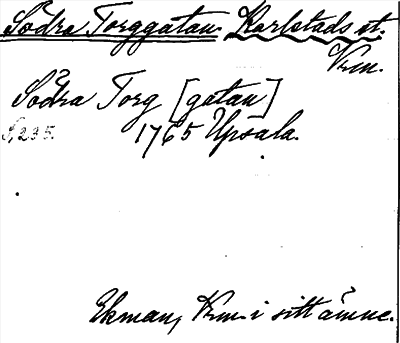 Södra Torggatan. Karlstads st.
Vrm.
Södra Torg [gatan]
S. 235. 1765 Upsala.
Ekman, Vrm. i sitt ämne.